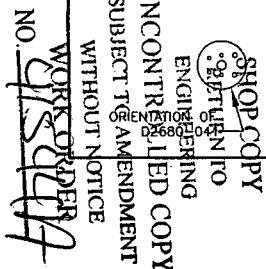 SHOP COPY
RETURN TO
ENGINEERING
UNCONTROLLED COPY
SUBJECT TO AMENDMENT
WITHOUT NOTICE
WORK ORDER
NO.
ORIENTATION OF
D2680-041